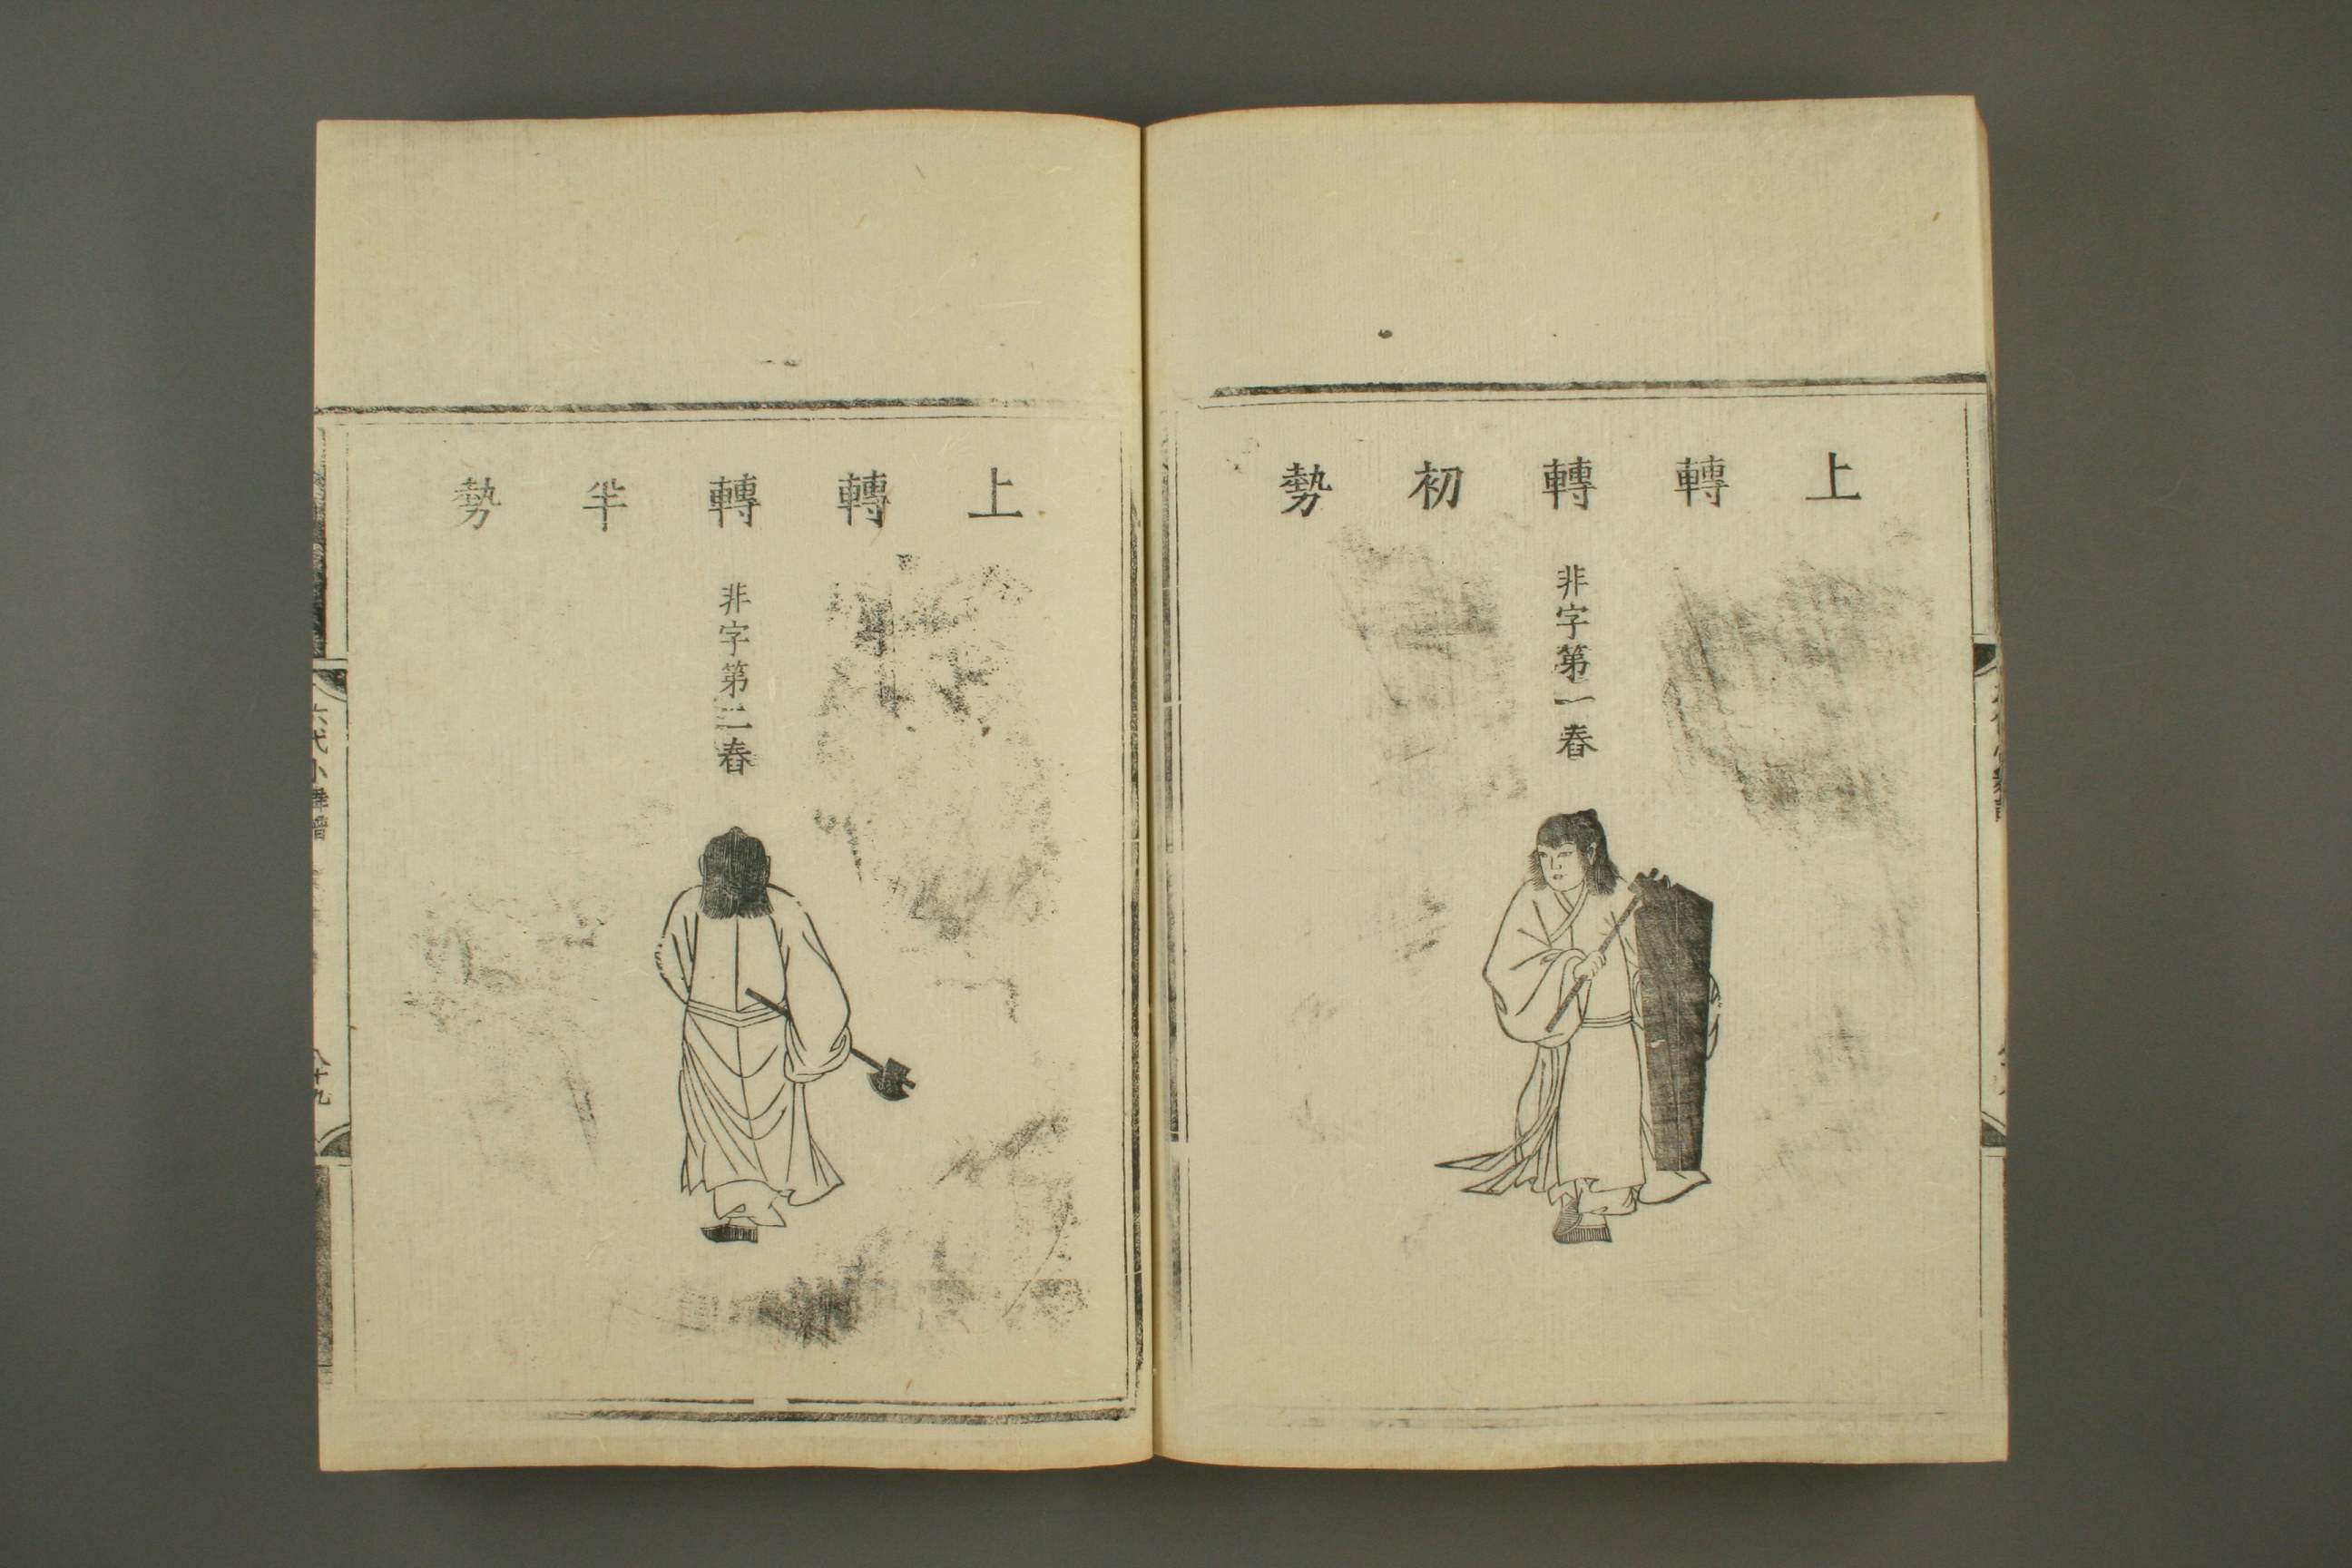 上轉轉初勢
非字第一舂
上轉轉半勢
非字第二舂
六代小舞譜
八十九